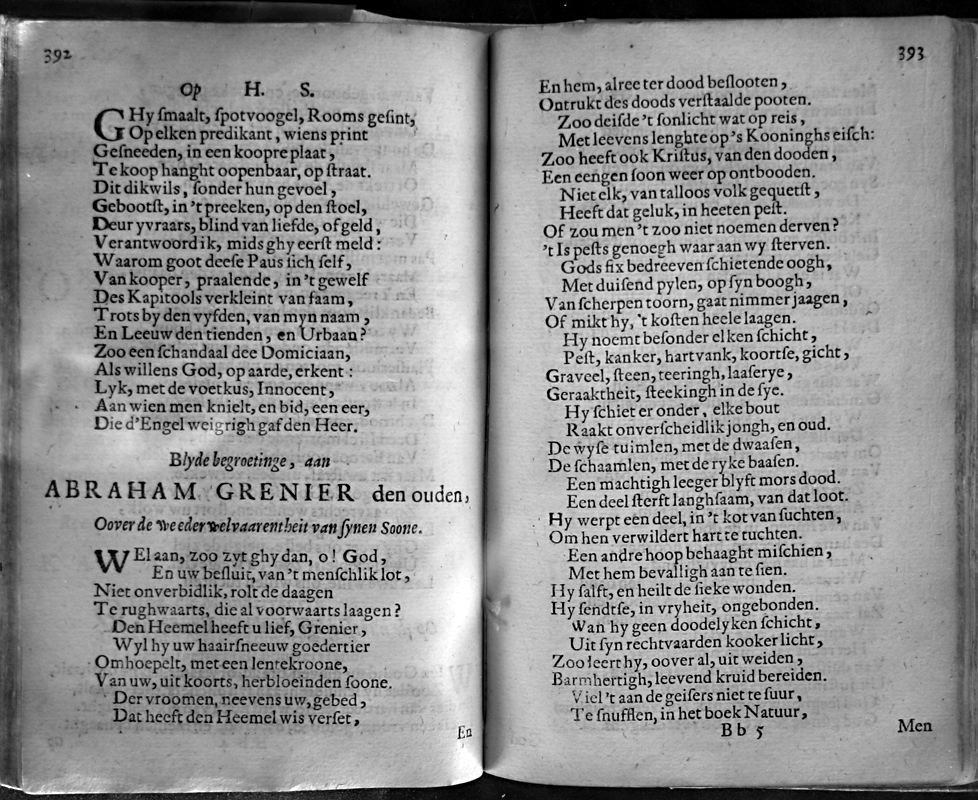 392
Op H. S.
GHy ſmaalt, ſpotvoogel, Rooms geſint,
Op elken predikant, wiens print
Geſneeden, in een koopre plaat,
Te koop hanght oopenbaar, op ſtraat.
Dit dikwils, ſonder hun gevoel,
Gebootſt, in 't preeken, op den ſtoel,
Deur yvraars, blind van liefde, of geld,
Verantwoord ik, mids ghy eerſt meld:
Waarom goot deeſe Paus ſich ſelf,
Van kooper, praalende, in 't gewelf
Des Kapitools verkleint van faam,
Trots by den vyfden, van myn naam,
En Leeuw den tienden, en Urbaan?
Zoo een ſchandaal dee Domiciaan,
Als willens God, op aarde, erkent:
Lyk, met de voetkus, Innocent,
Aan wien men knielt, en bid, een eer,
Die d'Engel weigrigh gaf den Heer.
Blyde begroetinge, aan
ABRAHAM GRENIER den ouden,
Oover de weederwelvaarentheit van ſynen Soone.
WEl aan, zoo zyt ghy dan, o! God,
En uw beſluit, van 't menſchlik lot,
Niet onverbidlik, rolt de daagen
Te rughwaarts, die al voorwaarts laagen?
Den Heemel heeft u lief, Grenier,
Wyl hy uw haairſneeuw goedertier
Omhoepelt, met een lentekroone,
Van uw, uit koorts, herbloeinden ſoone.
Der vroomen, neevens uw, gebed,
Dat heeft den Heemel wis verſet,
En
393
En hem, alree ter dood beſlooten,
Ontrukt des doods verſtaalde pooten.
Zoo deiſde 't ſonlicht wat op reis,
Met leevens lenghte op 's Kooninghs eiſch:
Zoo heeft ook Kriſtus, van den dooden,
Een eengen ſoon weer op ontbooden.
Niet elk, van talloos volk gequetſt,
Heeft dat geluk, in heeten peſt.
Of zou men 't zoo niet noemen derven?
't Is peſts genoegh waar aan wy ſterven.
Gods fix bedreeven ſchietende oogh,
Met duiſend pylen, op ſyn boogh,
Van ſcherpen toorn, gaat nimmer jaagen,
Of mikt hy, 't koſten heele laagen.
Hy noemt beſonder elken ſchicht,
Peſt, kanker, hartvank, koortſe, gicht,
Graveel, ſteen, teeringh, laaſerye,
Geraaktheit, ſteekingh in de ſye.
Hy ſchiet er onder, elke bout
Raakt onverſcheidlik jongh, en oud.
De wyſe tuimlen, met de dwaaſen,
De ſchaamlen, met de ryke baaſen.
Een machtigh leeger blyft mors dood.
Een deel ſterft langhſaam, van dat loot.
Hy werpt een deel, in 't kot van ſuchten,
Om hen verwildert hart te tuchten.
Een andre hoop behaaght miſchien,
Met hem bevalligh aan te ſien.
Hy ſalft, en heilt de ſieke wonden.
Hy ſendtſe, in vryheit, ongebonden.
Wan hy geen doodelyken ſchicht,
Uit ſyn rechtvaarden kooker licht,
Zoo leert hy, oover al, uit weiden,
Barmhertigh, leevend kruid bereiden.
Viel 't aan de geiſers niet te ſuur,
Te ſnufflen, in het boek Natuur,
Bb 5
Men